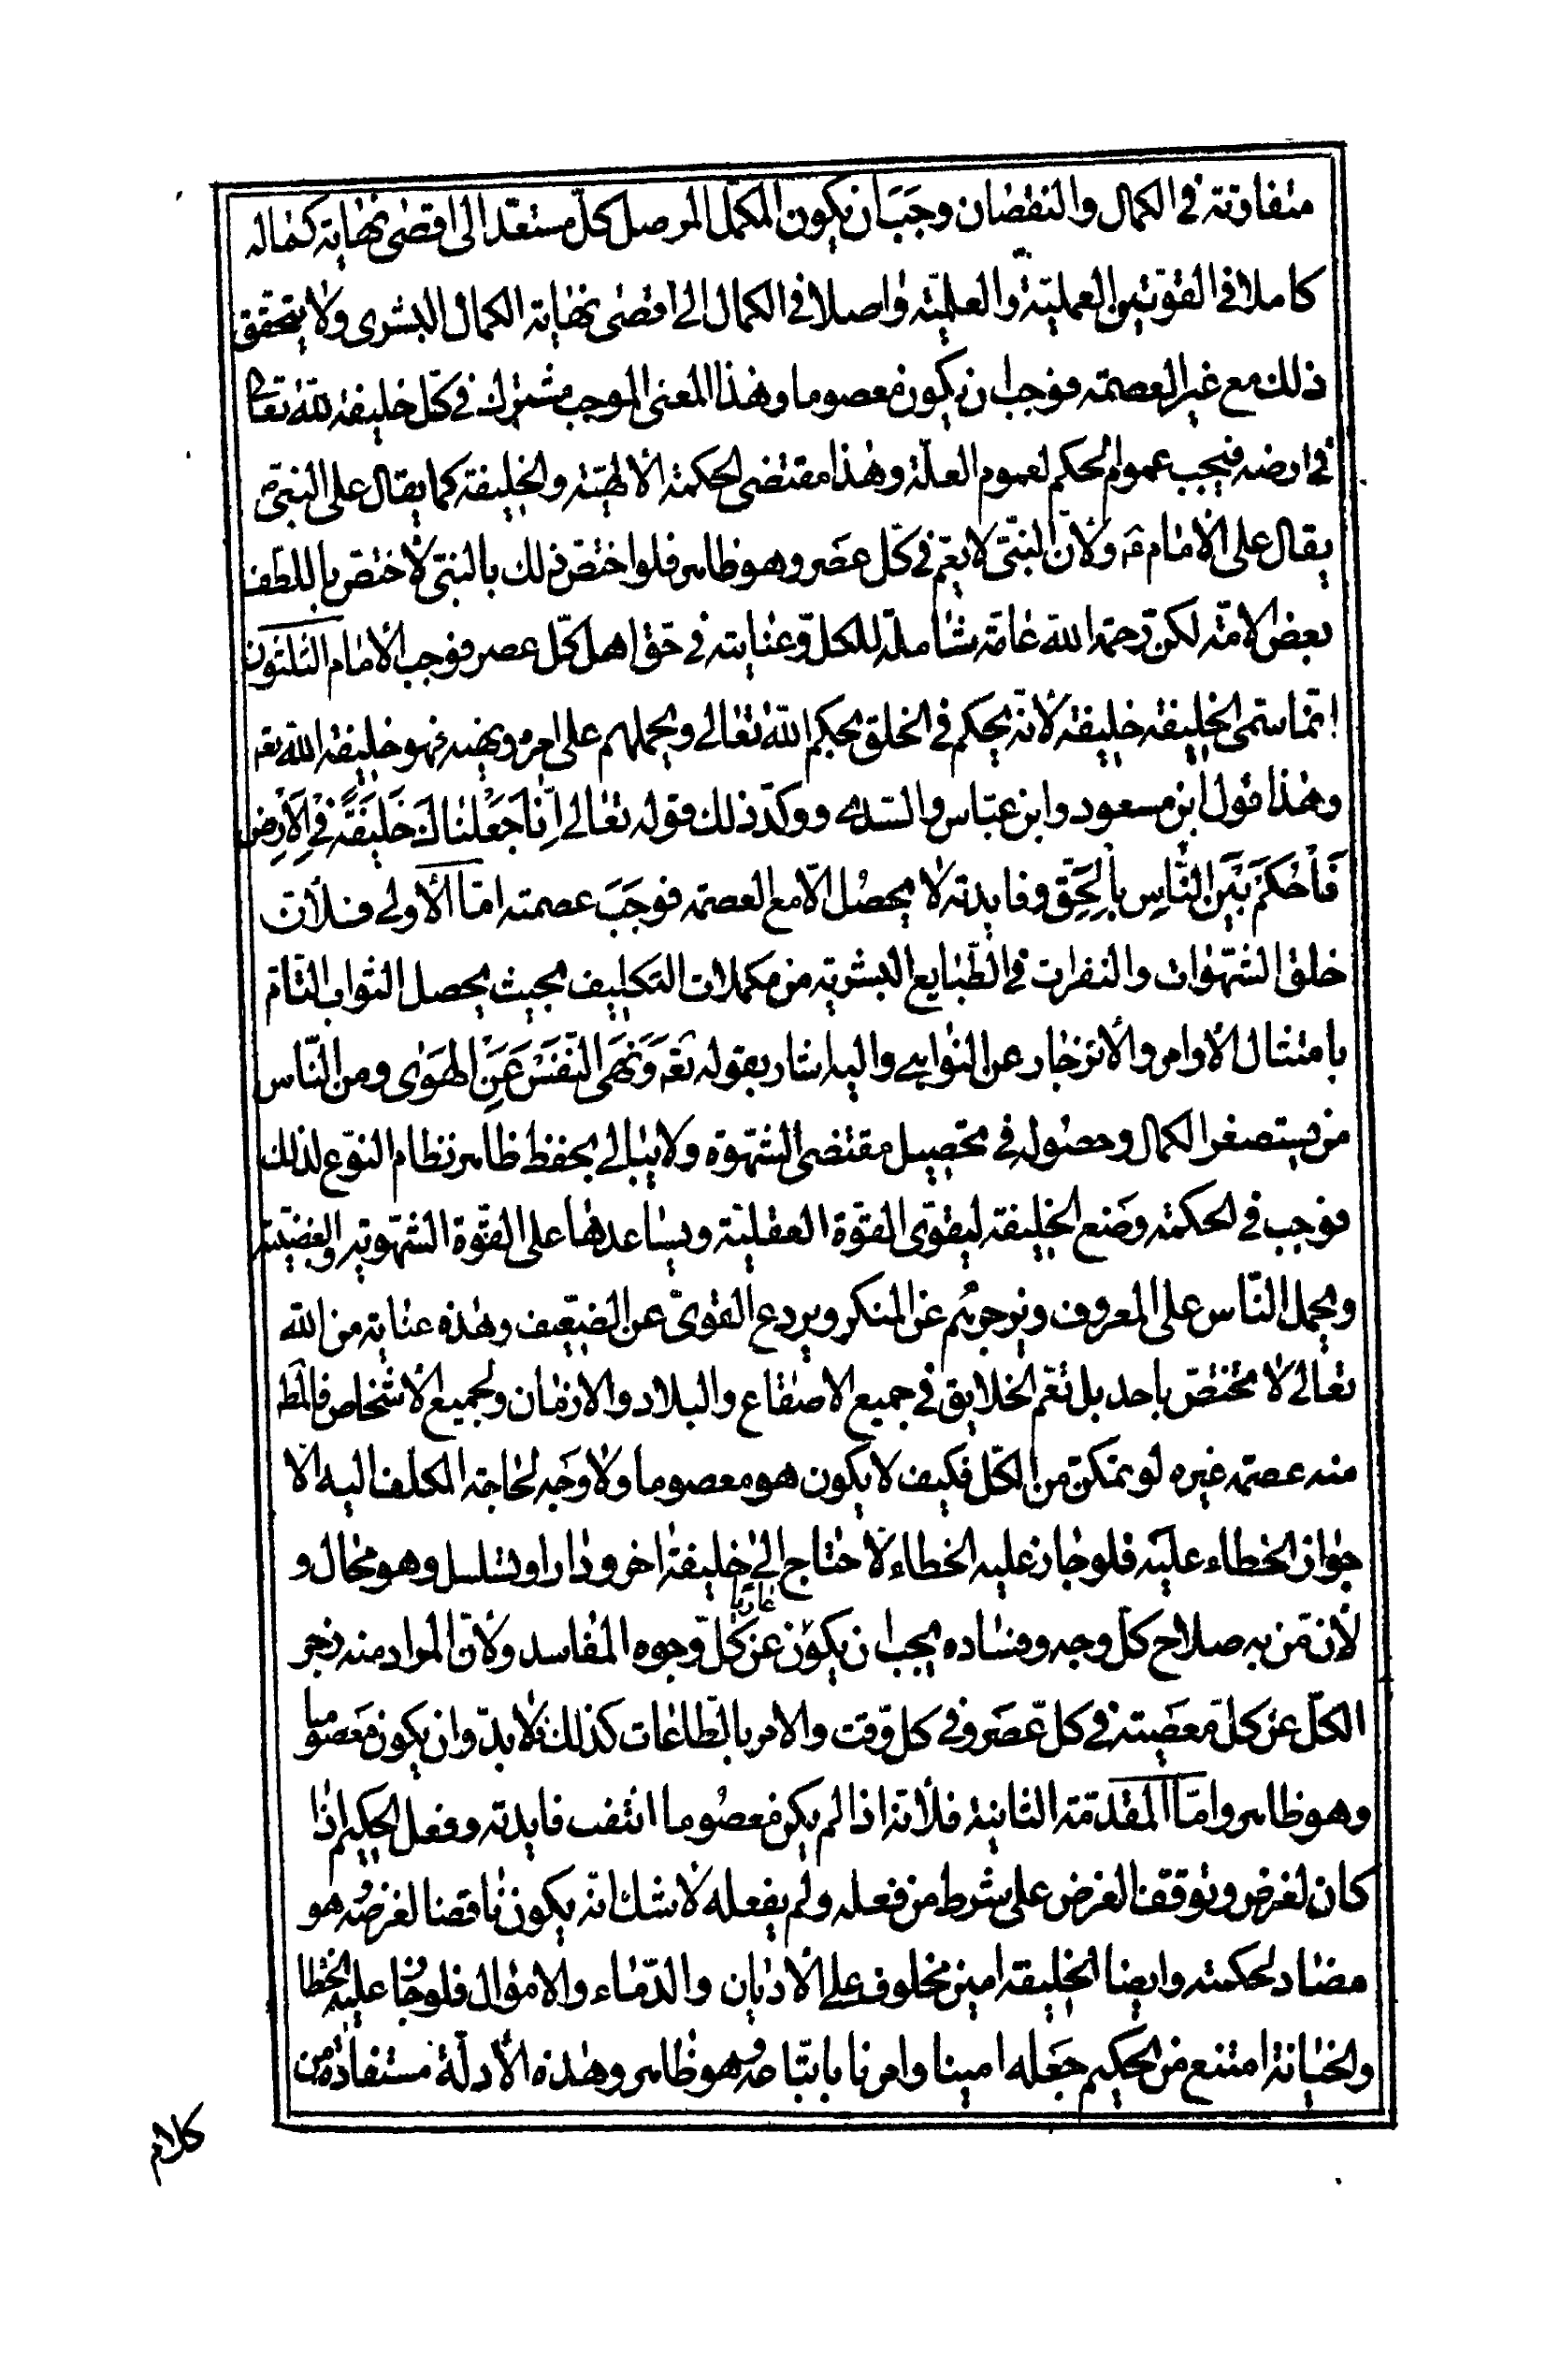 متفاوتة في الكمال والنقصان وجَبَ ان يكون المكمّل الموصل كلّ مستعدّ الى اقصى نهاية كماله
كاملا في القوتين العملية والعلمية واصلا في الكمال الى اقصى نهاية الكمال البشرى ولا يتحقق
ذلك مع غير العصمة فوجب ان يكون معصوما وهذا المعنى الموجب مشترك في كلّ خليفة للّه تعالى
في ارضه فيجب عموم الحكم لعموم العلّة وهذا مقتضى الحكمة الالهيّة والخليفة كما يقال على النبيّ ص
يقال على الامام ع ولانّ النبيّ لا يعمّ في كلّ عصر وهو ظاهر فلو اختصّ ذلك بالنبي لاختصّ باللطف
بعض الامّة لكن رحمة اللّه عامّة شاملة للكلّ وعنايته في حقّ اهل كلّ عصر فوجب الامام الثلثون
انّما سمّى الخليفة خليفة لانّه يحكم في الخلق بحكم اللّه تعالى ويحملهم على امره ونهيه فهو خليفة اللّه تعه
وهذا قول ابن مسعود وابن عبّاس والسّدى ووكّد ذلك قوله تعالى اِنّا جَعَلْناكَ خَليفَةً فِي الْاَرْضِ
فَاحْكُمْ بَيْنَ النّاسِ بِالْحَقِّ وفايدته لا يحصل الّا مع العصمة فوجَبَ عصمته امّا الاولى فلأن
خلق الشهوات والنفرات في الطّبايع البشرية من مكملات التكليف بحيث يحصل الثواب التامّ
بامتثال الأوامر والانزجار عن النواهي واليه اشار بقوله تعه وَنَهَى النَّفْسَ عَنِ الْهَوى ومن النّاس
من يستصغر الكمال وحصوله في تحصيل مقتضى الشهوة ولا يبالي بحفظ ظاهر نظام النوع لذلك
فوجب في الحكمة وضع الخليفة ليقوّى القوّة العقليّة ويساعدها على القوّة الشهوية والغضبية
ويحمل النّاس على المعروف ويزجرهم عن المنكر ويردع القوىّ عن الضعيف وهذه عناية من اللّه
تعالى لا تختصّ باحد بل تعمّ الخلايق في جميع الاصقاع والبلاد والازمان ولجميع الاشخاص فالمط
منه عصمة غيره لو تمكّن من الكلّ فكيف لا يكون هو معصوما ولا وجه لحاجة المكلف اليه الّا
جواز الخطاء عليه فلو جاز عليه الخطاء لاحتاج الى خليفة اخر ودار او تسلسل وهو محال و
لانّ من به صلاح كلّ وجه وفساده يجب ان يكون عاريا عن كلّ وجوه المفاسد ولانّ المراد منه زجر
الكلّ عن كلّ معصية في كلّ عصر وفي كلّ وقت والامر بالطّاعات كذلك فلا بدّ وان يكون معصوما
وهو ظاهر وامّا المقدّمة الثانية فلانّه اذا لم يكن معصوما انتفت فايدته وفعل الحكيم اذا
كان لغرض وتوقف الغرض على شرط من فعله ولم يفعله لا شك انّه يكون ناقضا لغرضه وهو
مضاد لحكمته وايضا الخليفة امين مخلوف على الاديان والدّماء والاموال فلو جاز عليه الخطا
والخيانة امتنع من الحكيم جعله امينا وامرنا باتباعه وهو ظاهر وهذه الأدلّة مستفادة من
كلام